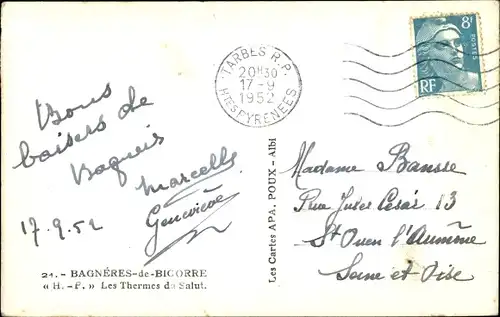 TARBES R.P.
20H30
17-9
1952
HTES PYRENEES
8F
POSTES
RF
Bons
baisers de
Marcelle
Geneviève
17.9.52
Madame Bansse
Rue Jules César 13
St Ouen l'Aumône
Seine et Oise
Les Cartes APA. POUX - Albi
21. - BAGNÉRES-de-BIGORRE
« H.-P. » Les Thermes du Salut.